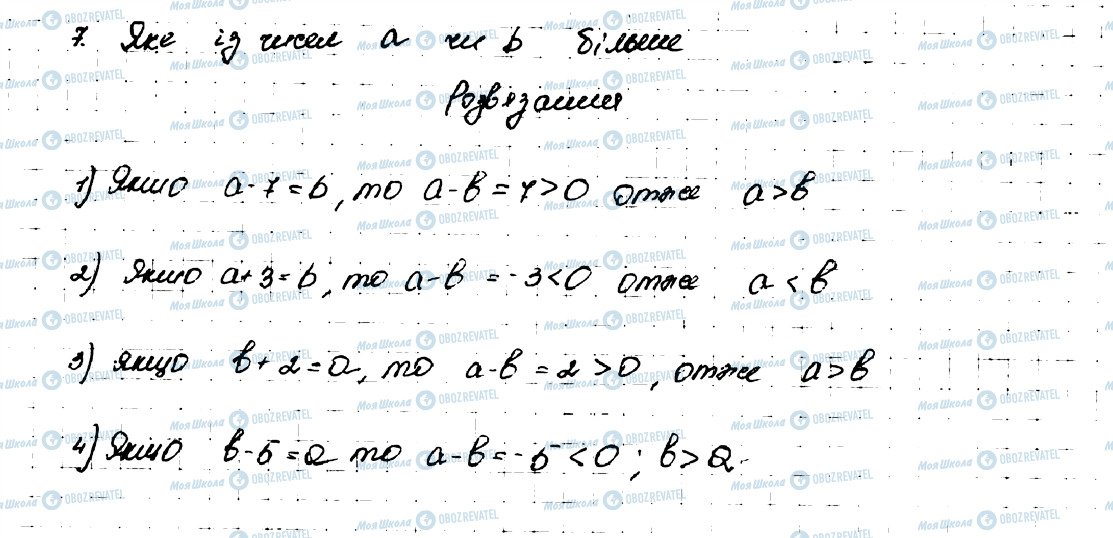 7. Яке із чисел a чи b більше
Розвязання
1) Якшо a-7=b, то a-b=7>0 отже a>b
2) Якшо a+3=b, то a-b = -3<0 отже a<b
3) якщо b+2=a, то a-b=2>0, отже a>b
4) Якшо b-5=a то a-b=-5<0; b>a.